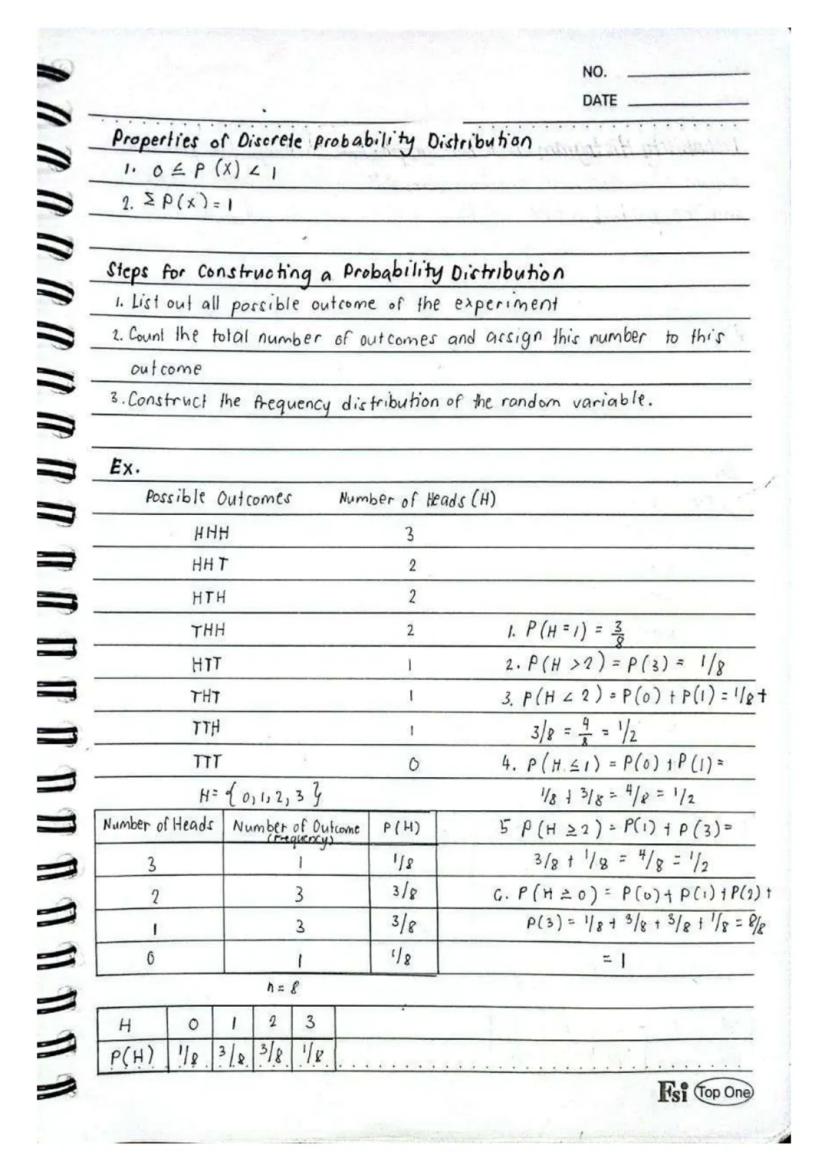 NO.
DATE
Properties of Discrete Probability Distribution
1. 0 ≤ P (X) < 1
2. Σ P(x) = 1
Steps for Constructing a Probability Distribution
1. List out all possible outcome of the experiment
2. Count the total number of outcomes and assign this number to this
outcome
3. Construct the frequency distribution of the random variable.
Ex.
Possible Outcomes Number of Heads (H)
HHH 3
HHT 2
HTH 2
THH 2 1. P(H=1) = 3/8
HTT 1 2. P(H >2) = P(3) = 1/8
THT 1 3. P(H < 2) = P(0) + P(1) = 1/8 +
TTH 1 3/8 = 4/8 = 1/2
TTT 0 4. P(H ≤ 1) = P(0) + P(1) =
H = { 0, 1, 2, 3 } 1/8 + 3/8 = 4/8 = 1/2
Number of Heads Number of Outcome (Frequency) P(H) 5 P(H ≥ 2) = P(1) + P(3) =
3 1 1/8 3/8 + 1/8 = 4/8 = 1/2
2 3 3/8 6. P(H ≥ 0) = P(0) + P(1) + P(2) +
1 3 3/8 P(3) = 1/8 + 3/8 + 3/8 + 1/8 = 8/8
0 1 1/8 = 1
n = 8
H 0 1 2 3
P(H) 1/8 3/8 3/8 1/8
Fsi Top One